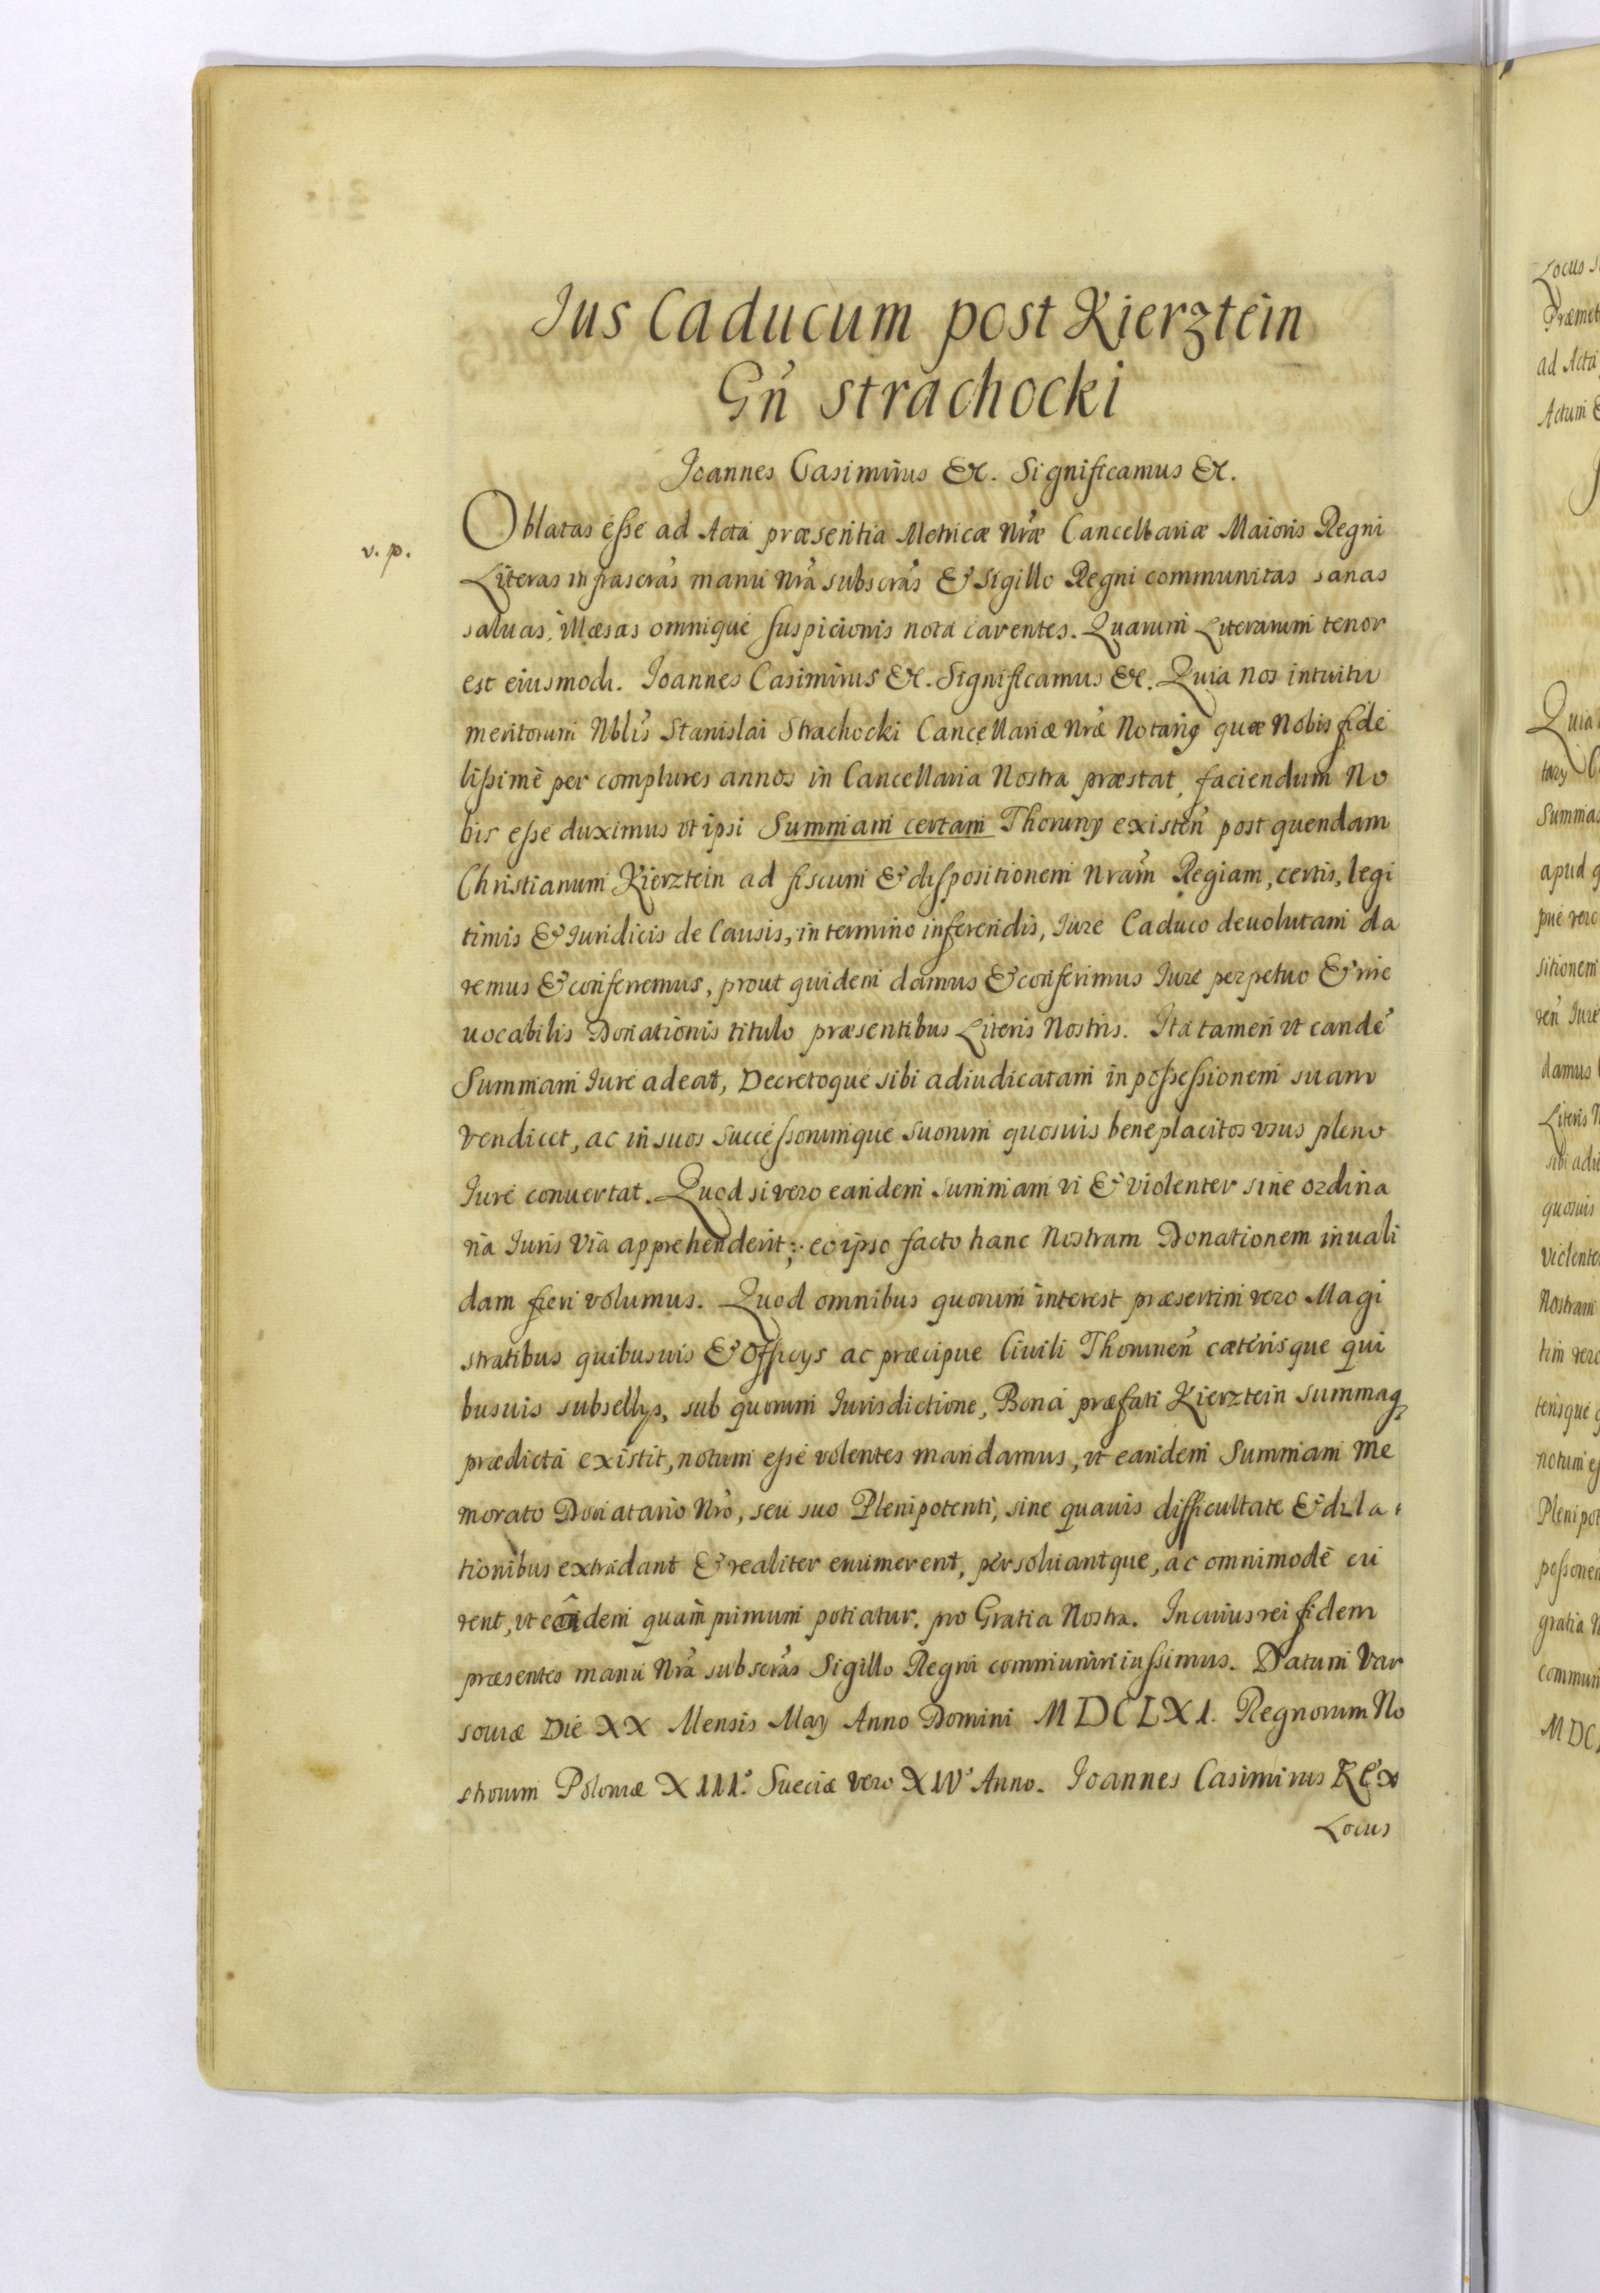 Ius Caducum post Kierztein
Gn̄ Strachocki
Joannes Casimirus &c. Significamus &c.
v. p.
Oblatas esse ad Acta præsentia Metricæ Nr̄æ Cancellariæ Maioris Regni
Literas infrascrās manu Nr̄a subscrās & Sigillo Regni communitas sanas
saluas, illæsas omnique suspicionis nota carentes. Quarum Literarum tenor
est eiusmodi. Joannes Casimirus &c. Significamus &c. Quia Nos intuitu
meritorum Nblis Stanislai Strachocki Cancellariæ Nræ Notarÿ quæ Nobis fide
lissime per complures annos in Cancellaria Nostra præstat, faciendum No
bis esse duximus vt ipsi Summam certam Thorunÿ existen̄ post quendam
Christianum Kierztein ad fiscum & dispositionem Nram̄ Regiam, certis, legi
timis & Iuridicis de Causis, in termino inferendis, Iure Caduco deuolutam da
remus & conferremus, prout quidem damus & conferimus Iure perpetuo & irre
uocabilis Donationis titulo præsentibus Literis Nostris. Ita tamen vt eande̅
Summam Iure adeat, Decretoque sibi adiudicatam in possessionem suam
vendicet, ac in suos successorumque suorum quosuis beneplacitos vsus pleno
Iure conuertat. Quod si vero eandem summam vi & violenter sine ordina
ria Iuris via apprehenderit; eo ipso facto hanc Nostram Donationem inuali
dam fieri volumus. Quod omnibus quorum interest præsertim vero Magi
stratibus quibusuis & Officÿs ac præcipue Ciuili Thorunen̄ cæterisque qui
busuis subsellÿs, sub quorum Iurisdictione, Bona præfati Kierztein summaq
prædicta existit, notum esse volentes mandamus, vt eandem Summam me
morato Donatario Nro, seu suo Plenipotenti, sine quauis difficultate & dila
tionibus extradant & realiter enumerent, persoluantque, ac omnimode cu
rent, vt eādem quam primum potiatur. pro Gratia Nostra. In cuius rei fidem
præsentes manu Nr̄a subscrās Sigillo Regni communiri iussimus. Datum Var
souiæ Die XX Mensis Maÿ Anno Domini MDCLXI. Regnorum No
strorum Poloniæ XIII. Sueciæ vero XIV Anno. Joannes Casimirus Rex
Locus